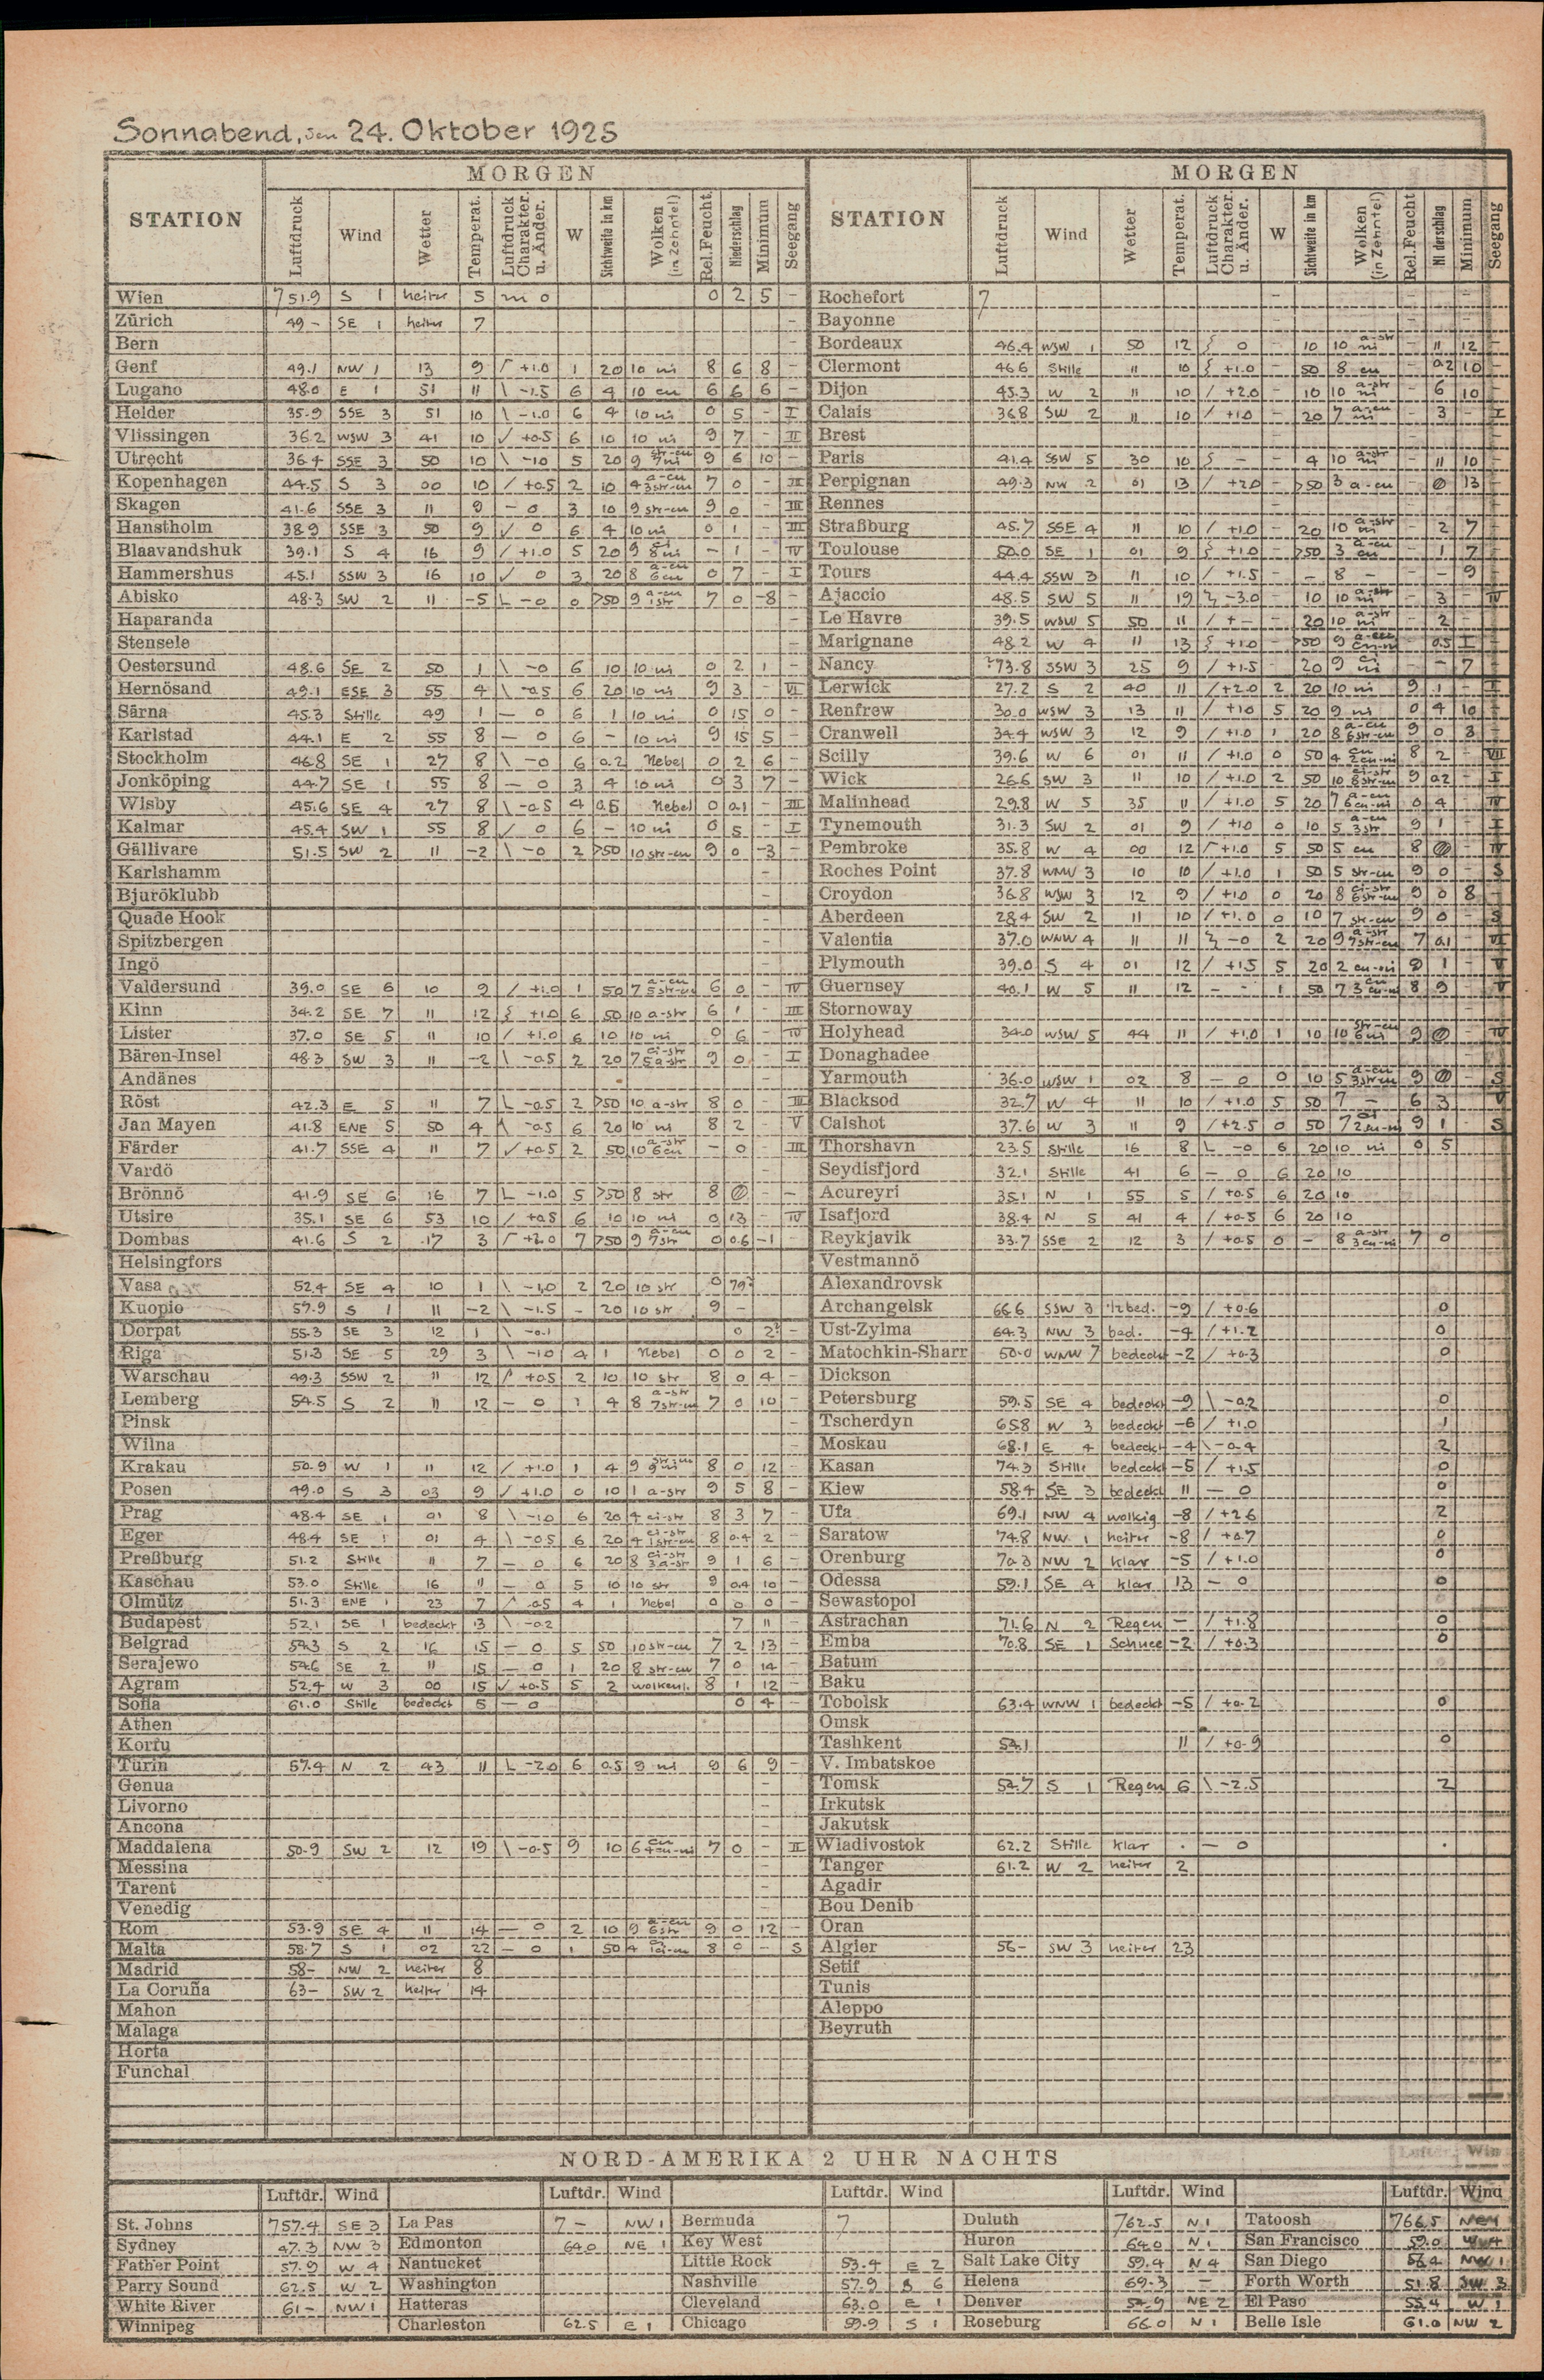 Sonnabend, den 24. Oktober 1925
STATION MORGEN STATION MORGEN
Luftdruck Wind Wetter Temperat. Luftdruck Charakter. u. Änder. W Sichtweite in km Wolken (in Zehntel) Rel.Feucht. Niederschlag Minimum Seegang Luftdruck Wind Wetter Temperat. Luftdruck Charakter. u. Änder. W Sichtweite in km Wolken (in Zehntel) Rel.Feucht Minimum Seegang
Wien 751.9 S 1 heiter 5 0 0 2 5 - Rochefort 7
Zürich 49- SE 1 heiter 7 - Bayonne
Bern - Bordeaux 46.4 WSW 1 50 12 0 - 10 10 a-str ni - 11 12 -
Genf 49.1 NW 1 13 9 +1.0 1 20 10 ni 8 6 8 - Clermont 46.6 Stille 11 10 +1.0 - 50 8 cu - 0.2 10 -
Lugano 48.0 E 1 51 11 \ -1.5 6 4 10 cu 6 6 6 - Dijon 45.3 W 2 11 10 / +2.0 10 10 a-str ni - 6 10
Helder 35.9 SSE 3 51 10 \ -1.0 6 4 10 ni 0 5 - I Calais 36.8 SW 2 11 10 / +1.0 - 20 7 a-cu ni - 3 - I
Vlissingen 36.2 WSW 3 41 10 ✓ +0.5 6 10 10 ni 9 7 - II Brest
Utrecht 36.4 SSE 3 50 10 \ -1.0 5 20 9 str-cu 7 ni 9 6 10 - Paris 41.4 SSW 5 30 10 - - 4 10 a-str ni - 11 10
Kopenhagen 44.5 S 3 00 10 / +0.5 2 10 4 a-cu 3 str-cu 7 0 - III Perpignan 49.3 NW 2 01 13 / +2.0 - >50 3 a-cu - 0 13 -
Skagen 41.6 SSE 3 11 9 - 0 3 10 9 str-cu 9 0 - III Rennes
Hanstholm 38.9 SSE 3 50 9 ✓ 0 6 4 10 ni 0 1 - III Straßburg 45.7 SSE 4 11 10 / +1.0 - 20 10 a-str ni - 2 7
Blaavandshuk 39.1 S 4 16 9 / +1.0 5 20 9 8 ni - 1 - IV Toulouse 50.0 SE 1 01 9 +1.0 - >50 3 a-cu cu - 1 7
Hammershus 45.1 SSW 3 16 10 ✓ 0 3 20 8 a-cu 6 cu 0 7 - I Tours 44.4 SSW 3 11 10 / +1.5 - - 8 - - - 9
Abisko 48.3 SW 2 11 -5 L -0 0 >50 9 a-cu 1 str 7 0 -8 - Ajaccio 48.5 SW 5 11 19 -3.0 - 10 10 a-str ni - 3 - IV
Haparanda - Le Havre 39.5 WSW 5 50 11 / + - - 20 10 a-str ni - 2 -
Stensele - Marignane 48.2 W 4 11 13 +1.0 - >50 9 a-cu cu-ni - 0.5 I
Oestersund 48.6 SE 2 50 1 \ -0 6 10 10 ni 0 2 1 - Nancy 73.8 SSW 3 25 9 / +1.5 - 20 9 ni - - 7
Hernösand 49.1 ESE 3 55 4 \ -0.5 6 20 10 ni 9 3 - VI Lerwick 27.2 S 2 40 11 / +2.0 2 20 10 ni 9 1 - I
Särna 45.3 Stille 49 1 - 0 6 1 10 ni 0 15 0 - Renfrew 30.0 WSW 3 13 11 / +1.0 5 20 9 ni 0 4 10 -
Karlstad 44.1 E 2 55 8 - 0 6 - 10 ni 9 15 5 - Cranwell 34.4 WSW 3 12 9 / +1.0 1 20 8 a-cu 6 str-cu 9 0 3 -
Stockholm 46.8 SE 1 27 8 \ -0 6 0.2 Nebel 0 2 6 - Scilly 39.6 W 6 01 11 / +1.0 0 50 4 cu 2 cu-ni 8 2 - VII
Jonköping 44.7 SE 1 55 8 - 0 3 4 10 ni 0 3 7 - Wick 26.6 SW 3 11 10 / +1.0 2 50 10 ci-str 8 str-cu 9 0.2 - I
Wisby 45.6 SE 4 27 8 \ -0.5 4 0.5 Nebel 0 0.1 - III Malinhead 29.8 W 5 35 11 / +1.0 5 20 7 a-cu 6 cu-ni 0 4 - IV
Kalmar 45.4 SW 1 55 8 ✓ 0 6 - 10 ni 0 5 - I Tynemouth 31.3 SW 2 01 9 / +1.0 0 10 5 a-cu 3 str 9 1 - I
Gällivare 51.5 SW 2 11 -2 \ -0 2 >50 10 str-cu 9 0 -3 - Pembroke 35.8 W 4 00 12 +1.0 5 50 5 cu 8 0 - IV
Karlshamm - Roches Point 37.8 WNW 3 10 10 / +1.0 1 50 5 str-cu 9 0 - S
Bjuröklubb - Croydon 36.8 WSW 3 12 9 / +1.0 0 20 8 ci-str 6 str-cu 9 0 8 -
Quade Hook - Aberdeen 28.4 SW 2 11 10 / +1.0 0 10 7 str-cu 9 0 - S
Spitzbergen - Valentia 37.0 WNW 4 11 11 -0 2 20 9 a-str 7 str-cu 7 0.1 - VI
Ingö - Plymouth 39.0 S 4 01 12 / +1.5 5 20 2 cu-ni 9 1 - V
Valdersund 39.0 SE 6 10 9 / +1.0 1 50 7 a-cu 5 str-cu 6 0 - IV Guernsey 40.1 W 5 11 12 - - 1 50 7 cu 3 cu-ni 8 9 - V
Kinn 34.2 SE 7 11 12 +1.0 6 50 10 a-str 6 1 - III Stornoway
Lister 37.0 SE 5 11 10 / +1.0 6 10 10 ni 0 6 - IV Holyhead 34.0 WSW 5 44 11 / +1.0 1 10 10 str-cu 6 ni 9 0 - IV
Bären-Insel 48.3 SW 3 11 -2 \ -0.5 2 20 7 ci-str 5 a-str 9 0 - I Donaghadee
Andänes - Yarmouth 36.0 WSW 1 02 8 - 0 0 10 5 a-cu 3 str-cu 9 0 - S
Röst 42.3 E 5 11 7 L -0.5 2 >50 10 a-str 8 0 - III Blacksod 32.7 W 4 11 10 / +1.0 5 50 7 - 6 3 V
Jan Mayen 41.8 ENE 5 50 4 -0.5 6 20 10 ni 8 2 - V Calshot 37.6 W 3 11 9 / +2.5 0 50 7 ci 2 cu-ni 9 1 - S
Färder 41.7 SSE 4 11 7 ✓ +0.5 2 50 10 a-str 6 cu - 0 - III Thorshavn 23.5 Stille 16 8 L -0 6 20 10 ni 0 5
Vardö - Seydisfjord 32.1 Stille 41 6 - 0 6 20 10
Brönnö 41.9 SE 6 16 7 L -1.0 5 >50 8 str 8 0 - - Acureyri 35.1 N 1 55 5 / +0.5 6 20 10
Utsire 35.1 SE 6 53 10 / +0.5 6 10 10 ni 0 13 - IV Isafjord 38.4 N 5 41 4 / +0.5 6 20 10
Dombas 41.6 S 2 17 3 +2.0 7 >50 9 a-cu 7 str 0 0.6 -1 Reykjavik 33.7 SSE 2 12 3 / +0.5 0 - 8 a-str 3 cu-ni 7 0
Helsingfors Vestmannö
Vasa 52.4 SE 4 10 1 \ -1.0 2 20 10 str 0 79? Alexandrovsk
Kuopio 57.9 S 1 11 -2 \ -1.5 - 20 10 str 9 - Archangelsk 66.6 SSW 3 ½bed. -9 / +0.6 0
Dorpat 55.3 SE 3 12 1 \ -0.1 0 2? - Ust-Zylma 64.3 NW 3 bed. -4 / +1.2 0
Riga 51.3 SE 5 29 3 \ -1.0 4 1 Nebel 0 0 2 - Matochkin-Sharr 50.0 WNW 7 bedeckt -2 / +0.3 0
Warschau 49.3 SSW 2 11 12 / +0.5 2 10 10 str 8 0 4 - Dickson
Lemberg 54.5 S 2 11 12 - 0 1 4 8 a-str 7 str-cu 7 0 10 - Petersburg 59.5 SE 4 bedeckt -9 \ -0.2 0
Pinsk - Tscherdyn 65.8 W 3 bedeckt -6 / +1.0 1
Wilna - Moskau 68.1 E 4 bedeckt -4 \ -0.4 2
Krakau 50.9 W 1 11 12 / +1.0 1 4 9 str-cu 9 ni 8 0 12 - Kasan 74.3 Stille bedeckt -5 / +1.5 0
Posen 49.0 S 3 03 9 / +1.0 0 10 1 a-str 9 5 8 - Kiew 58.4 SE 3 bedeckt 11 - 0 0
Prag 48.4 SE 1 01 8 \ -1.0 6 20 4 ci-str 8 3 7 - Ufa 69.1 NW 4 wolkig -8 / +2.6 2
Eger 48.4 SE 1 01 4 \ -0.5 6 20 4 ci-str 1 str-cu 8 0.4 2 - Saratow 74.8 NW 1 heiter -8 / +0.7 0
Preßburg 51.2 Stille 11 7 - 0 6 20 8 ci-str 3 a-str 9 1 6 - Orenburg 70.3 NW 2 klar -5 / +1.0 0
Kaschau 53.0 Stille 16 11 - 0 5 10 10 str 9 0.4 10 - Odessa 59.1 SE 4 klar 13 - 0 0
Olmütz 51.3 ENE 1 23 7 -0.5 4 1 Nebel 0 0 0 - Sewastopol
Budapest 52.1 SE 1 bedeckt 13 \ -0.2 7 11 - Astrachan 71.6 N 2 Regen - / +1.8 0
Belgrad 54.3 S 2 16 15 - 0 5 50 10 str-cu 7 2 13 - Emba 70.8 SE 1 Schnee -2 / +0.3 0
Serajewo 54.6 SE 2 11 15 - 0 1 20 8 str-cu 7 0 14 - Batum
Agram 52.4 W 3 00 15 ✓ +0.5 5 2 wolkenl. 8 1 12 - Baku
Sofia 61.0 Stille bedeckt 5 - 0 0 4 - Tobolsk 63.4 WNW 1 bedeckt -5 / +0.2 0
Athen Omsk
Korfu Tashkent 54.1 11 / +0.9 0
Turin 57.4 N 2 43 11 L -2.0 6 0.5 9 ni 9 6 9 - V. Imbatskoe
Genua - Tomsk 54.7 S 1 Regen 6 \ -2.5 2
Livorno - Irkutsk
Ancona - Jakutsk
Maddalena 50.9 SW 2 12 19 \ -0.5 9 10 6 cu 4 cu-ni 7 0 - II Wladivostok 62.2 Stille klar . - 0 .
Messina - Tanger 61.2 W 2 heiter 2
Tarent - Agadir
Venedig - Bou Denib
Rom 53.9 SE 4 11 14 - 0 2 10 9 a-cu 6 str 9 0 12 - Oran
Malta 58.7 S 1 02 22 - 0 1 50 4 8 0 - S Algier 56- SW 3 heiter 23
Madrid 58- NW 2 heiter 8 Setif
La Coruña 63- SW 2 heiter 14 Tunis
Mahon Aleppo
Malaga Beyruth
Horta
Funchal
NORD-AMERIKA 2 UHR NACHTS
Luftdr. Wind Luftdr. Wind Luftdr. Wind Luftdr. Wind Luftdr. Wind
St. Johns 757.4 SE 3 La Pas 7- NW 1 Bermuda 7 Duluth 762.5 N 1 Tatoosh 766.5
Sydney 47.3 NW 3 Edmonton 64.0 NE 1 Key West Huron 64.0 N 1 San Francisco 59.0 W 4
Father Point 57.9 W 4 Nantucket Little Rock 53.4 E 2 Salt Lake City 59.4 N 4 San Diego 56.4 NW 1
Parry Sound 62.5 W 2 Washington Nashville 57.9 S 6 Helena 69.3 - Forth Worth 51.8 SW 3
White River 61- NW 1 Hatteras Cleveland 63.0 E 1 Denver 54.9 NE 2 El Paso 55.4 W 1
Winnipeg Charleston 62.5 E 1 Chicago 59.9 S 1 Roseburg 66.0 N 1 Belle Isle 61.0 NW 2